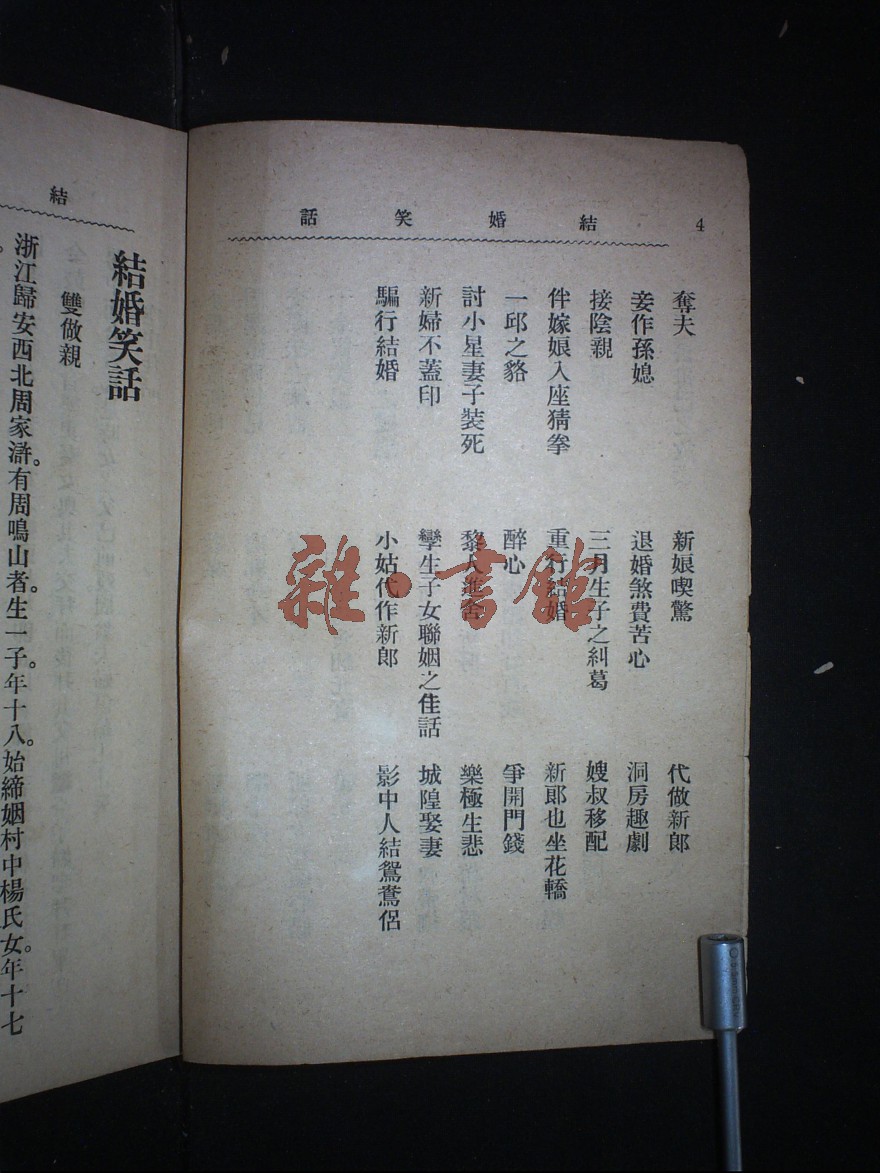 4 結婚笑話
奪夫 新娘喫驚 代做新郎
妾作孫媳 退婚煞費苦心 洞房趣劇
接陰親 三月生子之糾葛 嫂叔移配
伴嫁娘入座猜拳 重行結婚 新郎也坐花轎
一邱之貉 醉心 爭開門錢
討小星妻子裝死 黎人進舍 樂極生悲
新婦不蓋印 孿生子女聯姻之佳話 城隍娶妻
騙行結婚 小姑代作新郎 影中人結鴛鴦侶
結
結婚笑話
雙做親
浙江歸安西北周家滸。有周鳴山者。生一子。年十八。始締姻村中楊氏女。年十七
雜·書館